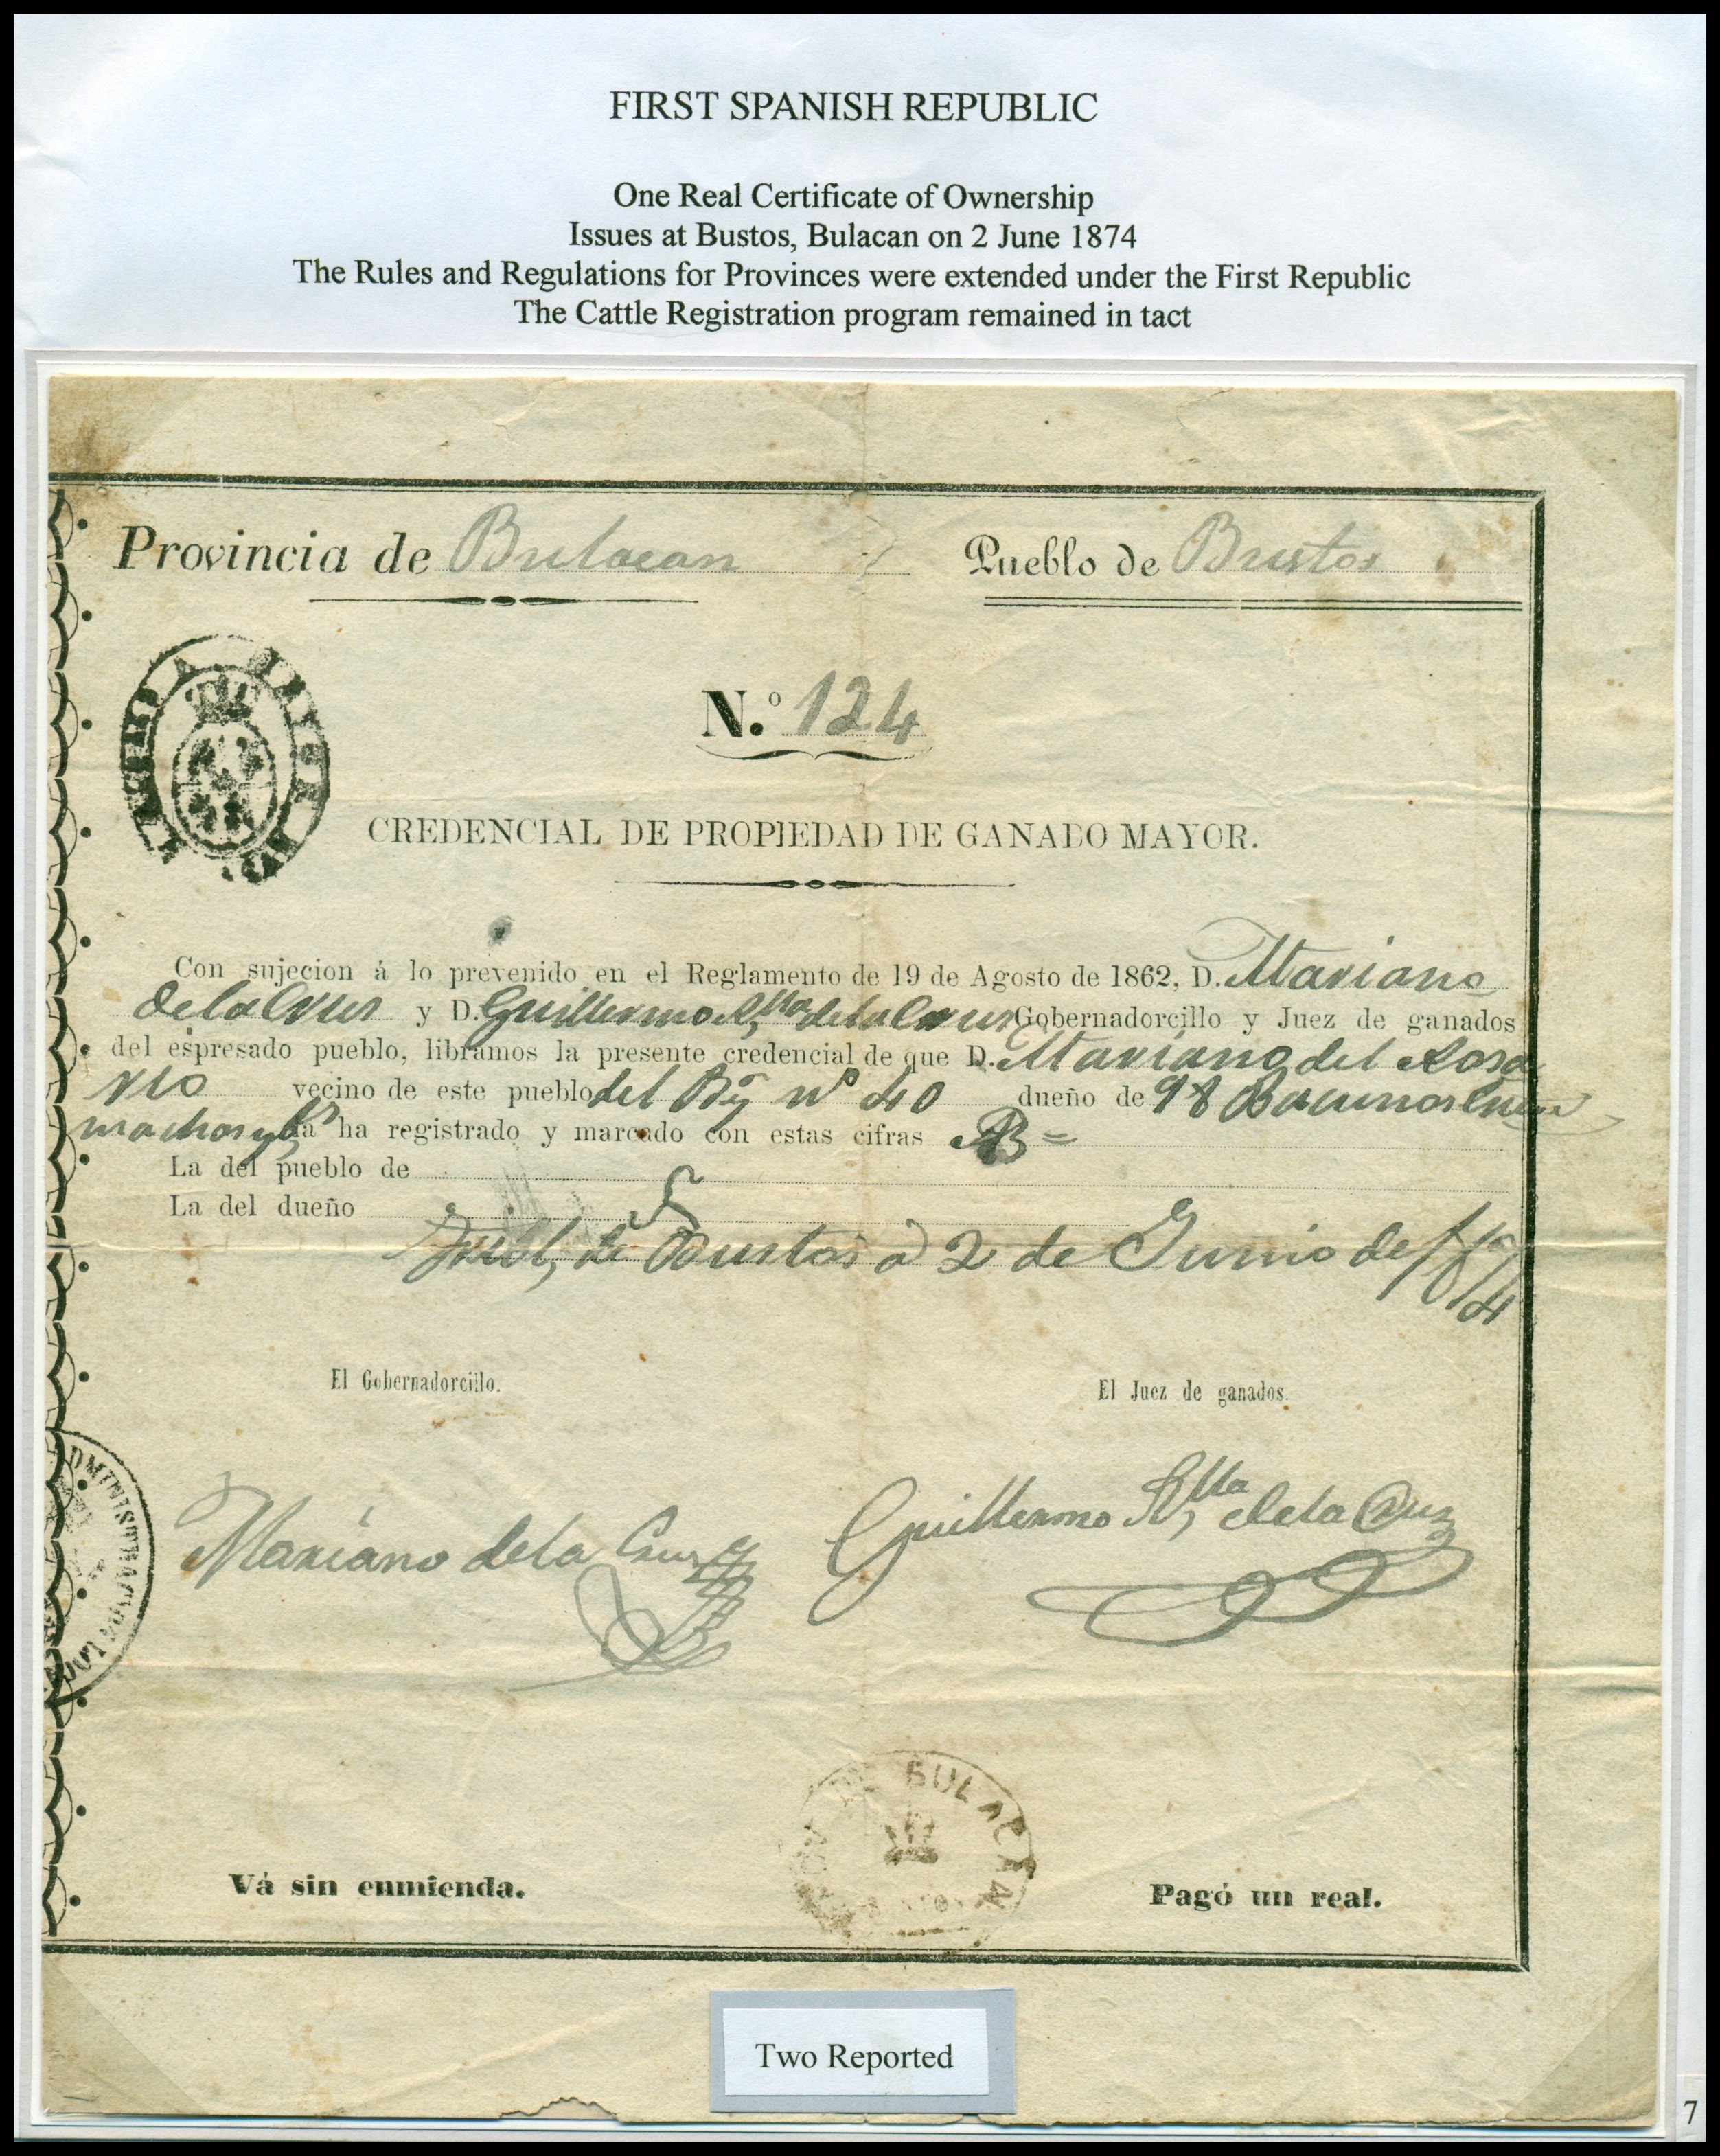 FIRST SPANISH REPUBLIC
One Real Certificate of Ownership
Issues at Bustos, Bulacan on 2 June 1874
The Rules and Regulations for Provinces were extended under the First Republic
The Cattle Registration program remained in tact
Provincia de Bulacan Pueblo de Bustos
N.º 124
CREDENCIAL DE PROPIEDAD DE GANADO MAYOR.
Con sujecion á lo prevenido en el Reglamento de 19 de Agosto de 1862, D. Mariano
de la Crus y D. Guillermo de la Crus Gobernadorcillo y Juez de ganados
del espresado pueblo, libramos la presente credencial de que D. Mariano del Rosa
rio vecino de este pueblo del nº 40 dueño de
machos y ha registrado y marcado con estas cifras
La del pueblo de
La del dueño
de Bustos a 2 de Junio de 1874
El Gobernadorcillo. El Juez de ganados.
Mariano de la Cruz Guillermo de la Cruz
DMINISTRACION
BULACAN
Vá sin enmienda. Pagó un real.
Two Reported
7